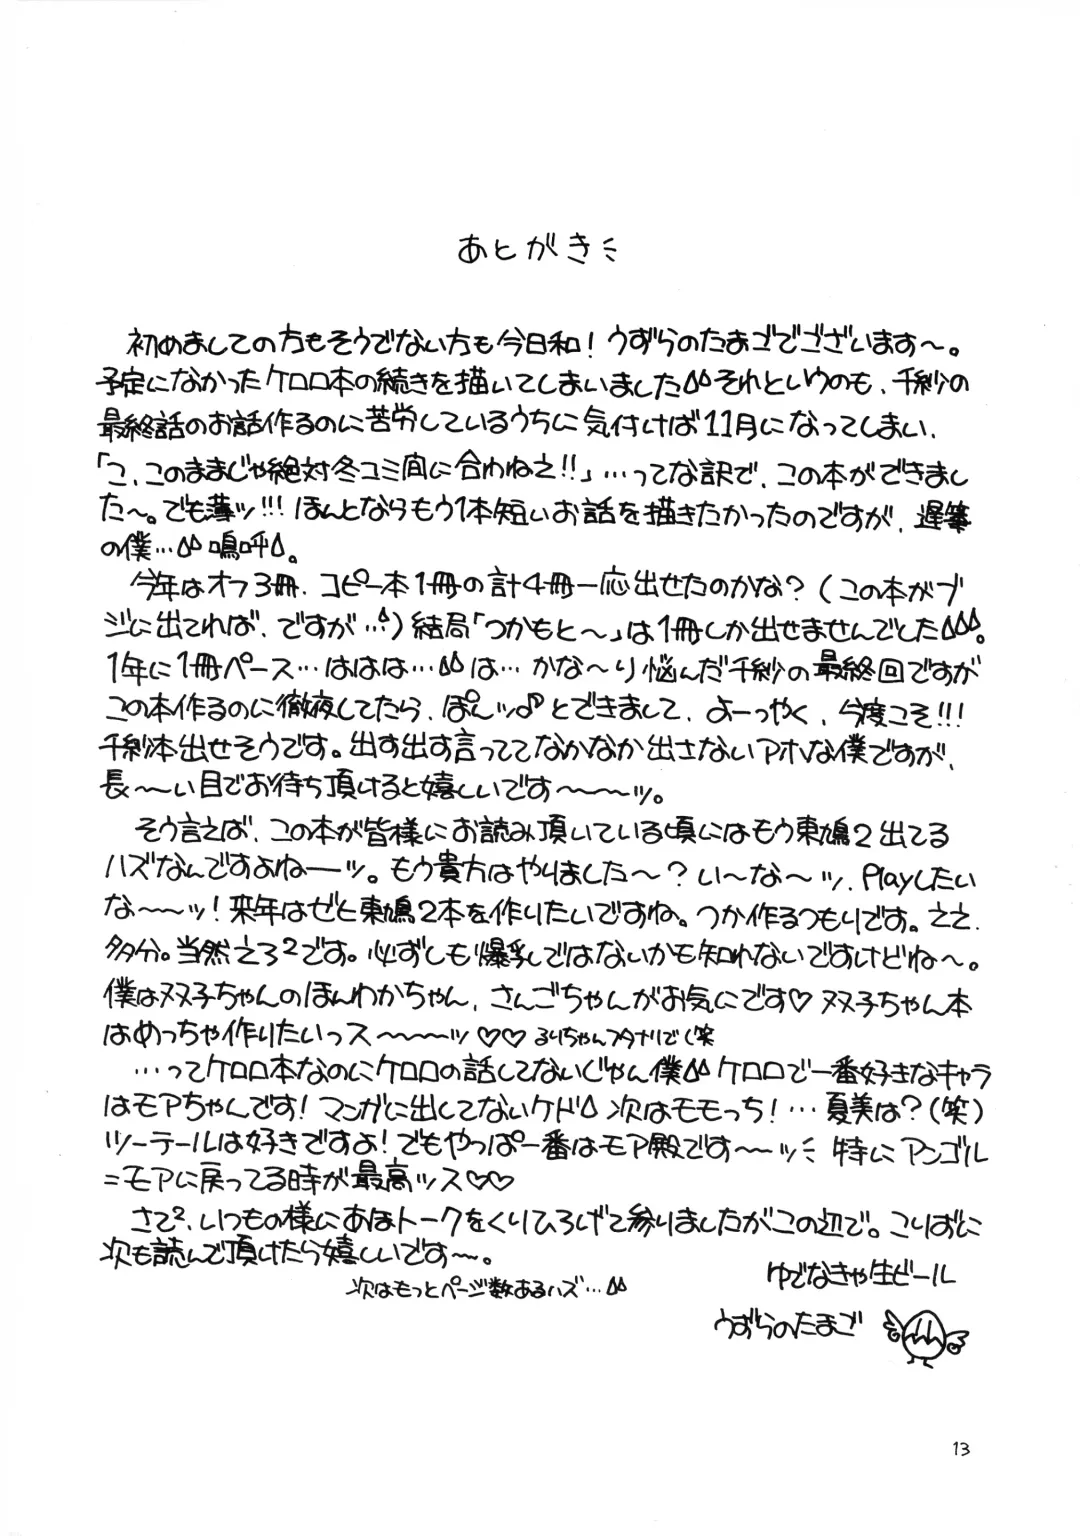 あとがき
初めましての方もそうでない方も今日和！うずらのたまごでございます〜。
予定になかったケロロ本の続きを描いてしまいましたそれというのも、千紗の
最終話のお話作るのに苦労しているうちに気付けば11月になってしまい、
「こ、このままじゃ絶対冬コミ間に合わねェ!!」…ってな訳で、この本ができまし
た〜。でも薄ッ!!!ほんとならもう1本短いお話を描きたかったのですが、遅筆
の僕…嗚呼。
今年はオフ3冊、コピー本1冊の計4冊一応出せたのかな？(この本がブ
ジに出てれば、ですが…)結局「つかもと〜」は1冊しか出せませんでした。
1年に1冊ペース…ははは…は…かな〜り悩んだ千紗の最終回ですが
この本作るのに徹夜してたら、ぽんッ♪とできまして、よーっやく、今度こそ!!!
千紗本出せそうです。出す出す言っててなかなか出さないアホな僕ですが、
長〜い目でお待ち頂けると嬉しいです〜〜〜ッ。
そう言えば、この本が皆様にお読み頂いている頃にはもう東鳩2出てる
ハズなんですよねーッ。もう貴方はやりました〜？い〜な〜ッ、Playしたい
な〜〜ッ！来年はぜと東鳩2本を作りたいですね。つか作るつもりです。ええ、
多分。当然えろ²です。必ずしも爆乳ではないかも知れないですけどね〜。
僕は双子ちゃんのほんわかちゃん、さんごちゃんがお気にです♡双子ちゃん本
はめっちゃ作りたいっス〜〜〜ッ♡♡るりちゃんフタナリで(笑
…ってケロロ本なのにケロロの話してないじゃん僕ケロロで一番好きなキャラ
はモアちゃんです！マンガに出してないケド次はモモっち！…夏美は？(笑)
ツーテールは好きですよ！でもやっぱ一番はモア殿です〜〜ッ特にアンゴル
＝モアに戻ってる時が最高ッス♡♡
さて²、いつもの様にあほトークをくりひろげて参りましたがこの辺で。こりずに
次も読んで頂けたら嬉しいです〜。
次はもっとページ数あるハズ…
ゆでなきゃ生ビール
うずらのたまご
13